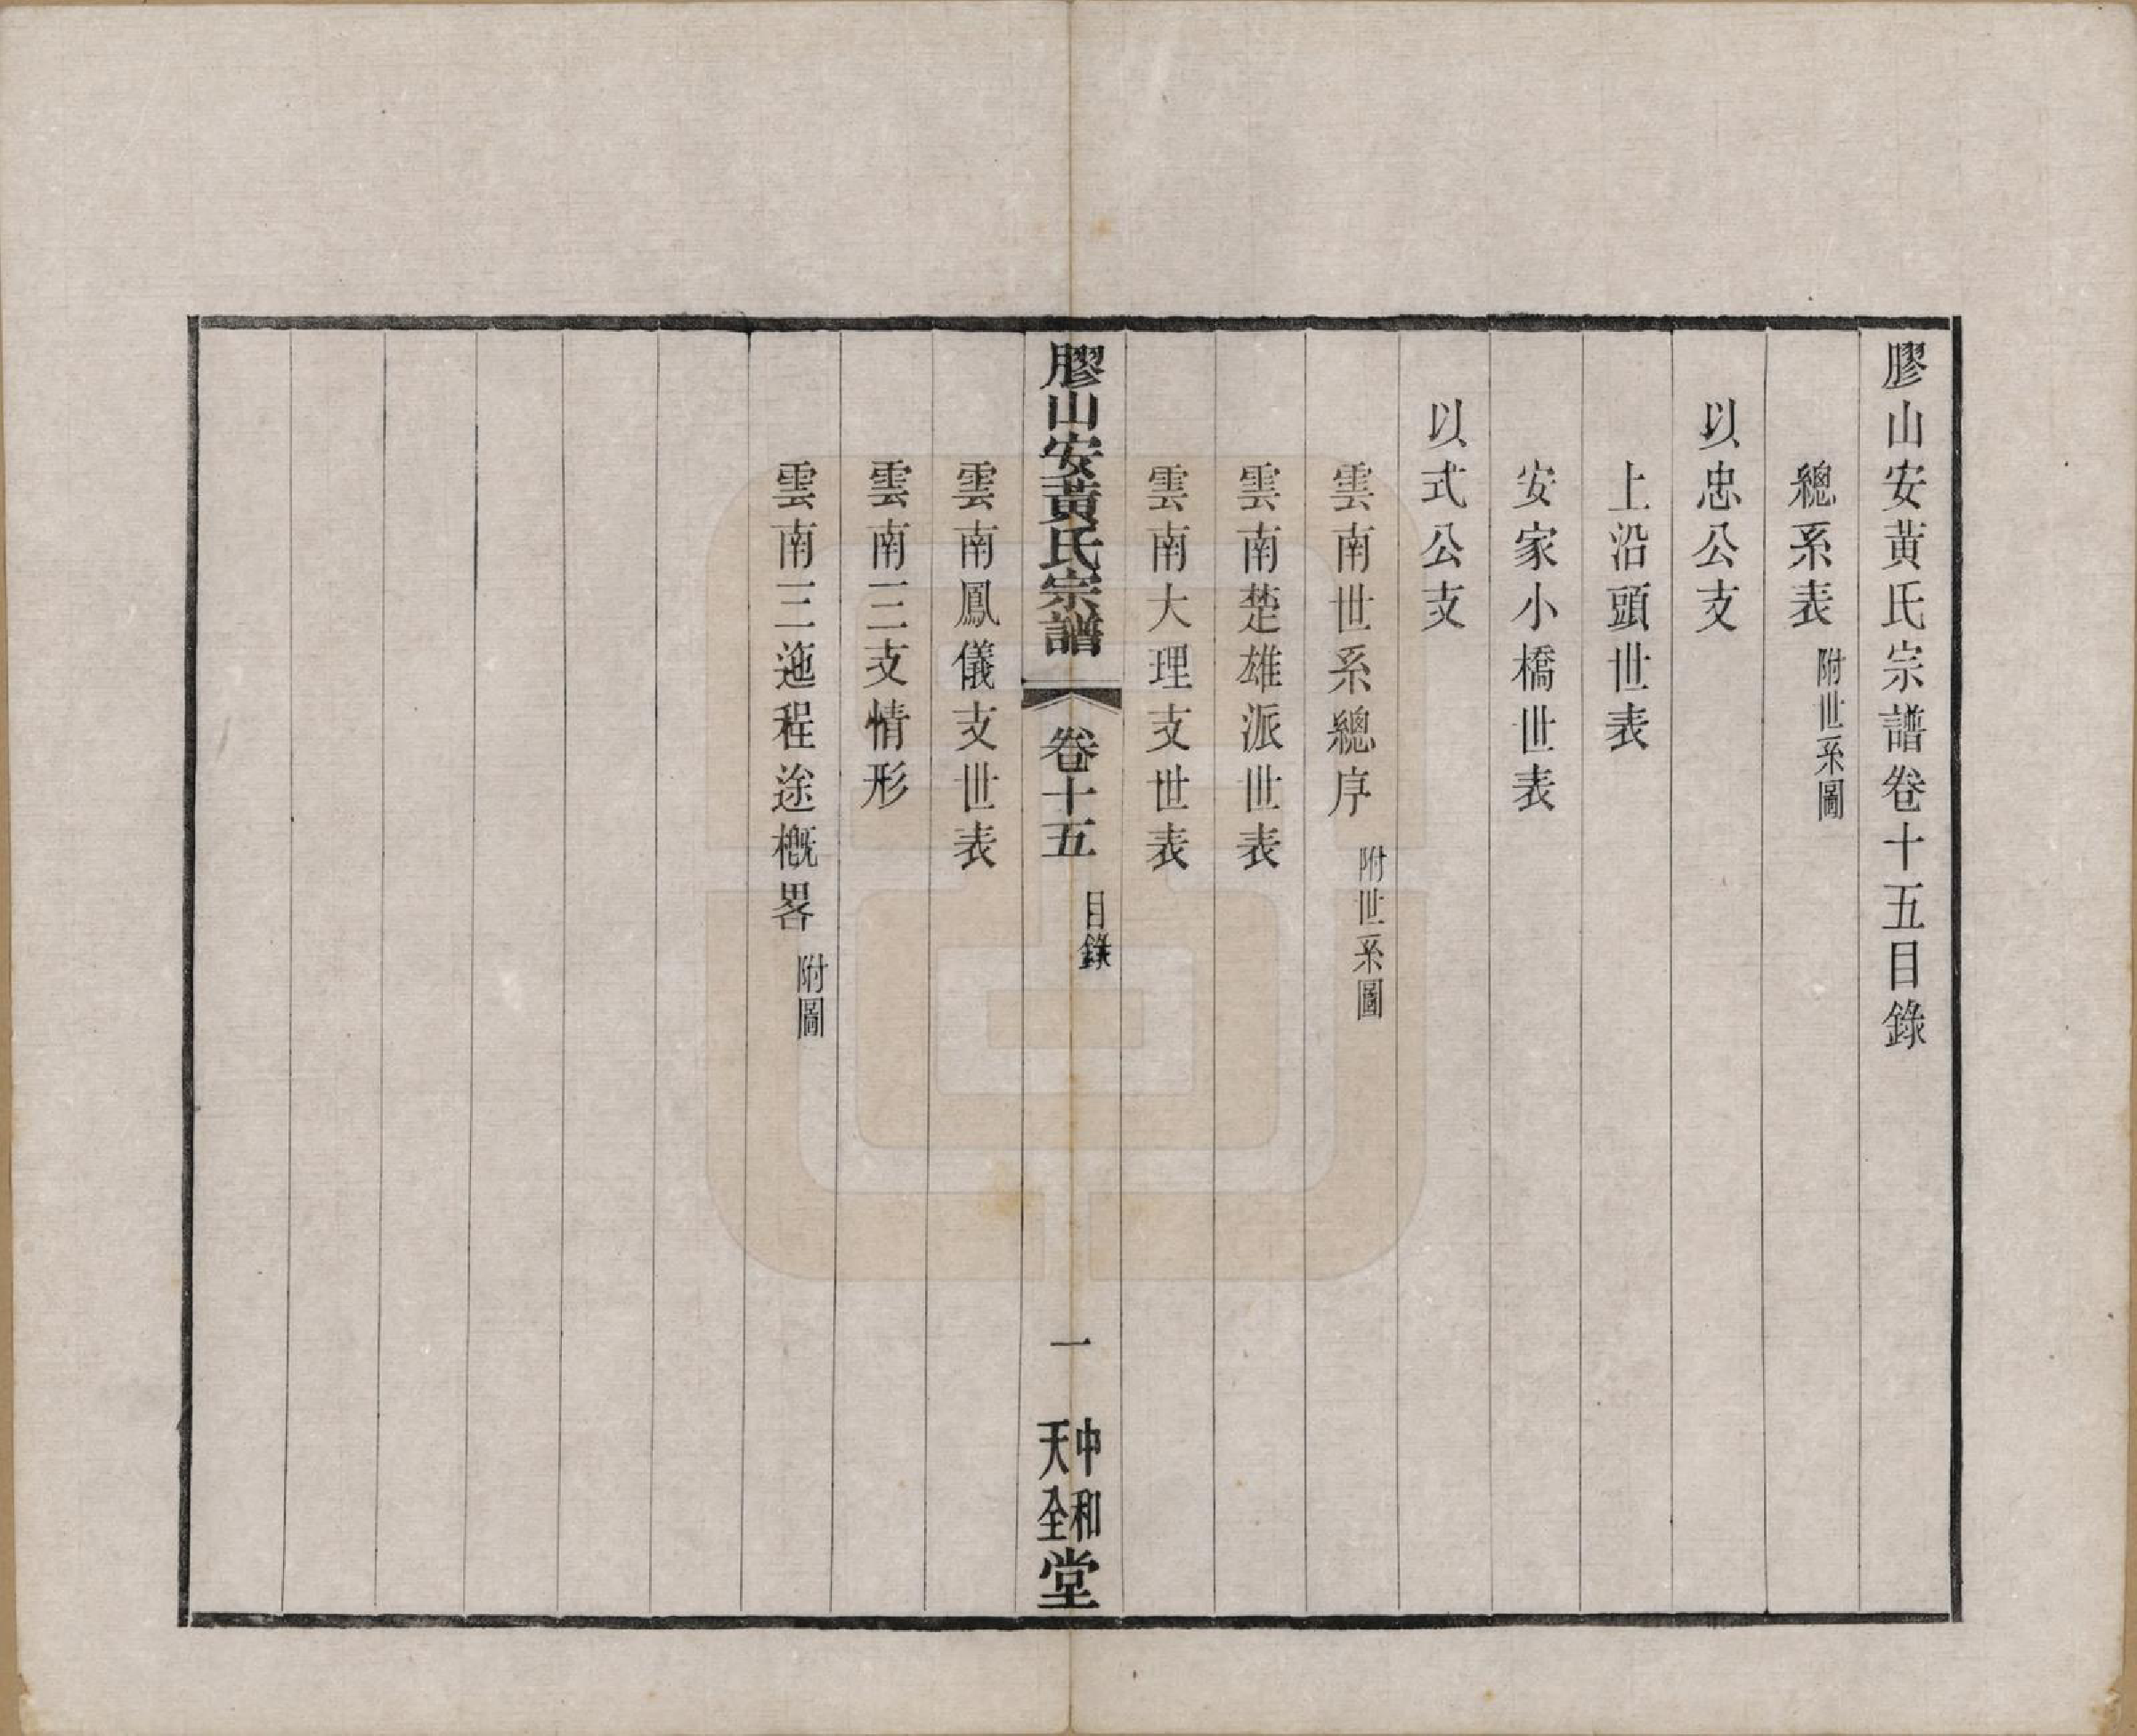 膠山安黃氏宗譜卷十五目錄
總系表 附世系圖
以忠公支
上沿頭世表
安家小橋世表
以式公支
雲南世系總序 附世系圖
雲南楚雄派世表
雲南大理支世表
膠山安黃氏宗譜 卷十五 目錄 一 中和 天全 堂
雲南鳳儀支世表
雲南三支情形
雲南三迤程途概畧 附圖